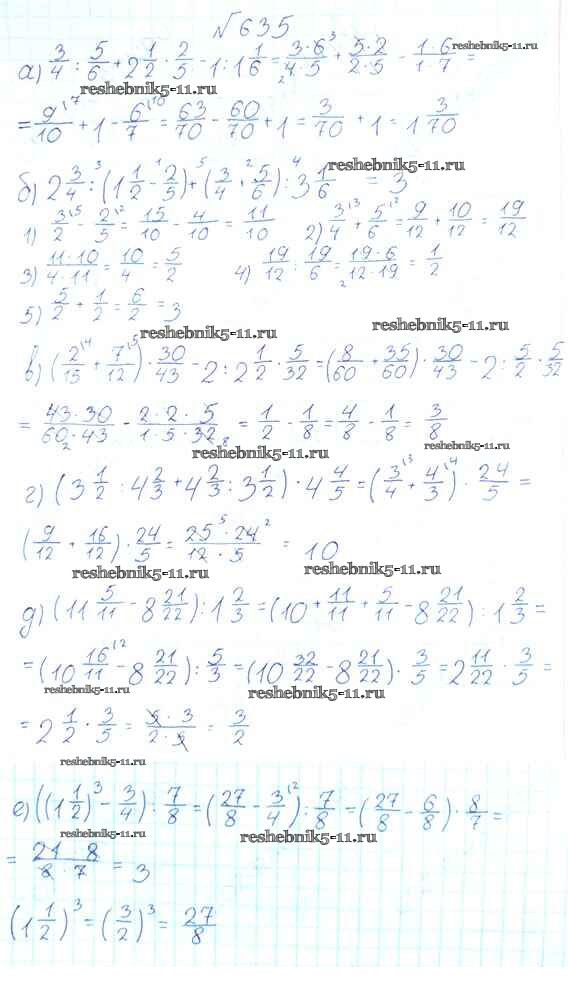 №635
а) 3/4 : 5/6 + 2 1/2 · 2/5 - 1 : 1 1/6 = 3·6 ³/₂4·5 + 5·2/2·5 - 1·6/1·7 =
reshebnik5-11.ru
reshebnik5-11.ru
= 9 \7/10 + 1 - 6 \10/7 = 63/70 - 60/70 + 1 = 3/70 + 1 = 1 3/70
reshebnik5-11.ru
б) 2 3/4 :³ (1 1/2 -¹ 2/5) +⁵ (3/4 +² 5/6) :⁴ 3 1/6 = 3
1) 3 \5/2 - 2 \2/5 = 15/10 - 4/10 = 11/10 2) 3 \3/4 + 5 \2/6 = 9/12 + 10/12 = 19/12
3) 11·10/4·11 = 10/4 = 5/2 4) 19/12 : 19/6 = 19·6/₂12·19 = 1/2
5) 5/2 + 1/2 = 6/2 = 3
reshebnik5-11.ru reshebnik5-11.ru
в) (2 \4/15 + 7 \5/12) · 30/43 - 2 : 2 1/2 · 5/32 = (8/60 + 35/60) · 30/43 - 2 : 5/2 · 5/32
= 43·30/60₂·43 - 2·2·5/1·5·32₈ = 1/2 - 1/8 = 4/8 - 1/8 = 3/8
reshebnik5-11.ru
г) (3 1/2 : 4 2/3 + 4 2/3 : 3 1/2) · 4 4/5 = (3 \3/4 + 4 \4/3) · 24/5 =
(9/12 + 16/12) · 24/5 = 25 ⁵ · 24 ²/12 · 5 = 10
reshebnik5-11.ru reshebnik5-11.ru
д) (11 5/11 - 8 21/22) : 1 2/3 = (10 + 11/11 + 5/11 - 8 21/22) : 1 2/3 =
= (10 16 \2/11 - 8 21/22) : 5/3 = (10 32/22 - 8 21/22) · 3/5 = 2 11/22 · 3/5 =
reshebnik5-11.ru reshebnik5-11.ru
= 2 1/2 · 3/5 = 5·3/2·5 = 3/2
reshebnik5-11.ru
е) ((1 1/2)³ - 3/4) : 7/8 = (27/8 - 3 \2/4) : 7/8 = (27/8 - 6/8) · 8/7 =
reshebnik5-11.ru reshebnik5-11.ru
= 21·8/8·7 = 3
(1 1/2)³ = (3/2)³ = 27/8